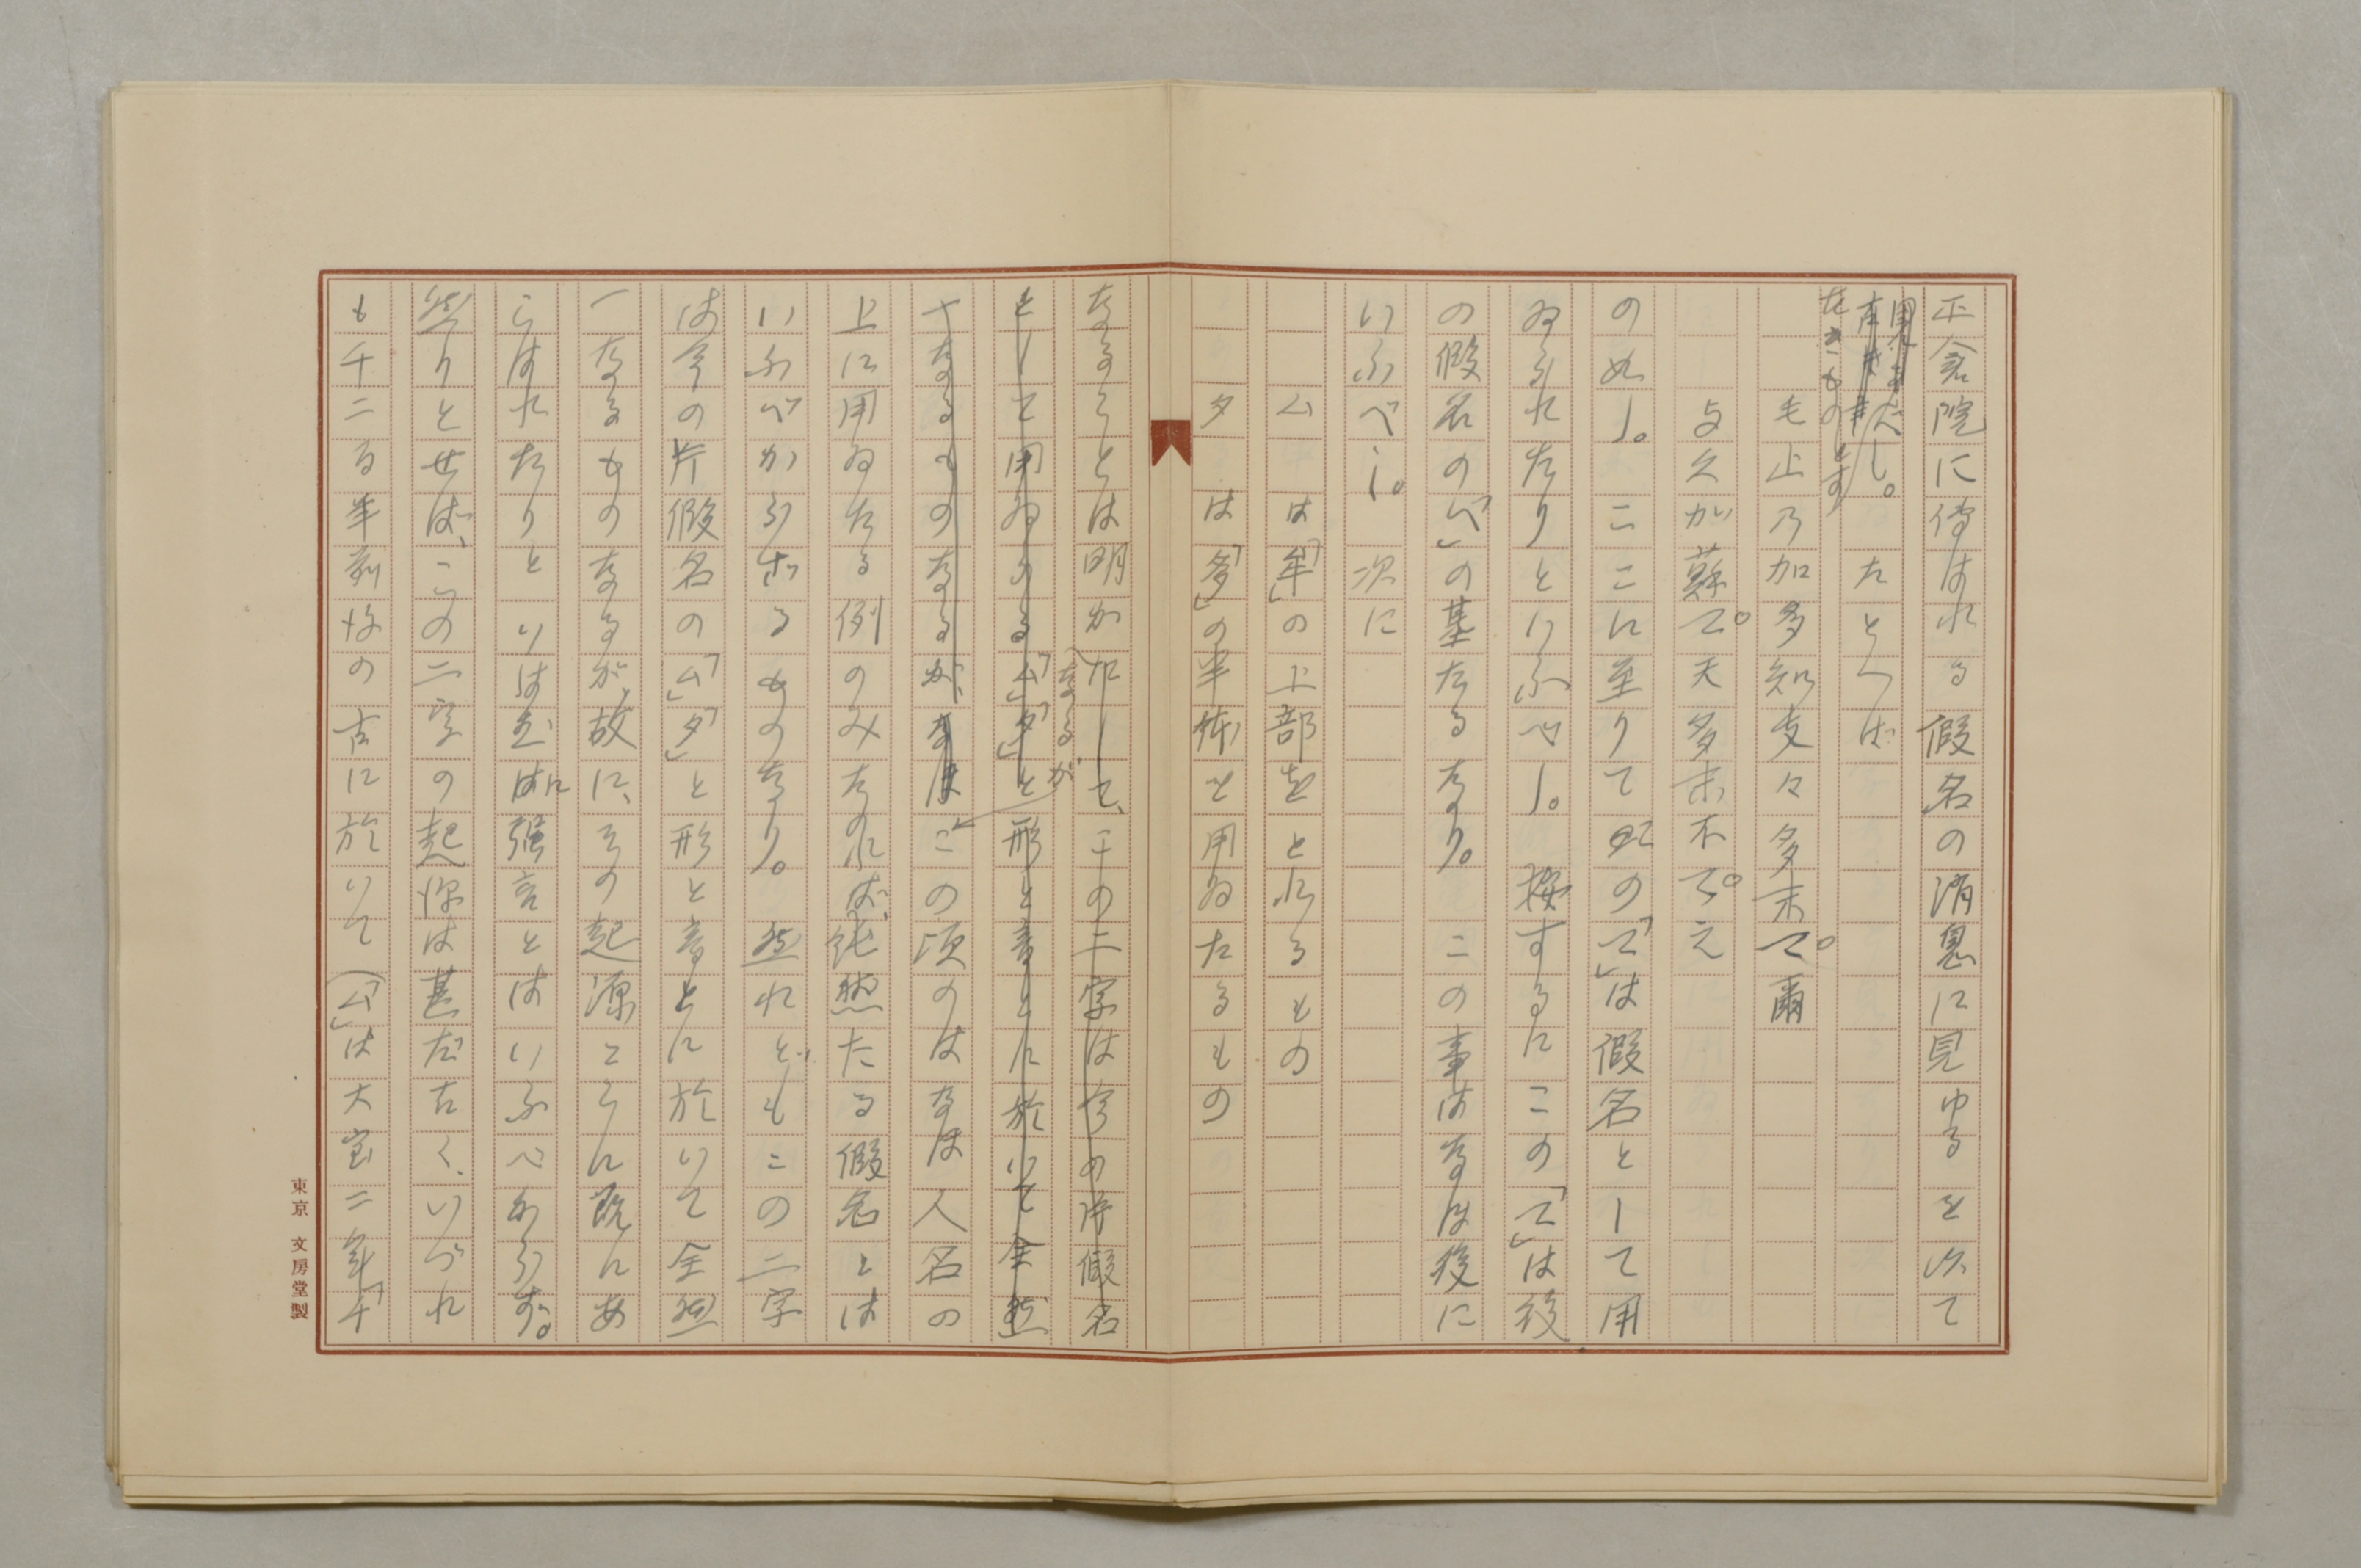 正倉院に傳はれる假名の消息に見ゆるを以て
たしかなるものとす
し。たとへば
毛止乃加多知支々多末マ爾
与久加蘇マ天多末不マえ
のぬし。ここに至りて此の「マ」は假名として用
ゐられたりといふべし。按ずるにこの「マ」は後
の假名の「へ」の基たるなり。この事はなほ後に
いふべし。次に
ム は「牟」の上部をとれるもの
タ は「多」の半体を用ゐたるもの
なることは明かにして、この二字は今の片假名
として用ゐらるる「ム」「タ」と形と音とに於いて全然
一なるものなるが、なほこの頃のはなほ人名の
なるが
上に用ゐたる例のみなれば、純然たる假名とは
いふべからざるものなり。然れどもこの二字
は今の片假名の「ム」「タ」と形と音とに於いて全然
一なるものなるが故に、その起源ここらに既にあ
らはれたりといはむには强言とはいふべからず。
然りとせば、この二字の起源は甚だ古く、いづれ
も千二百年前後の古に於いて(「ム」は大宝二年「千
東京 文房堂製